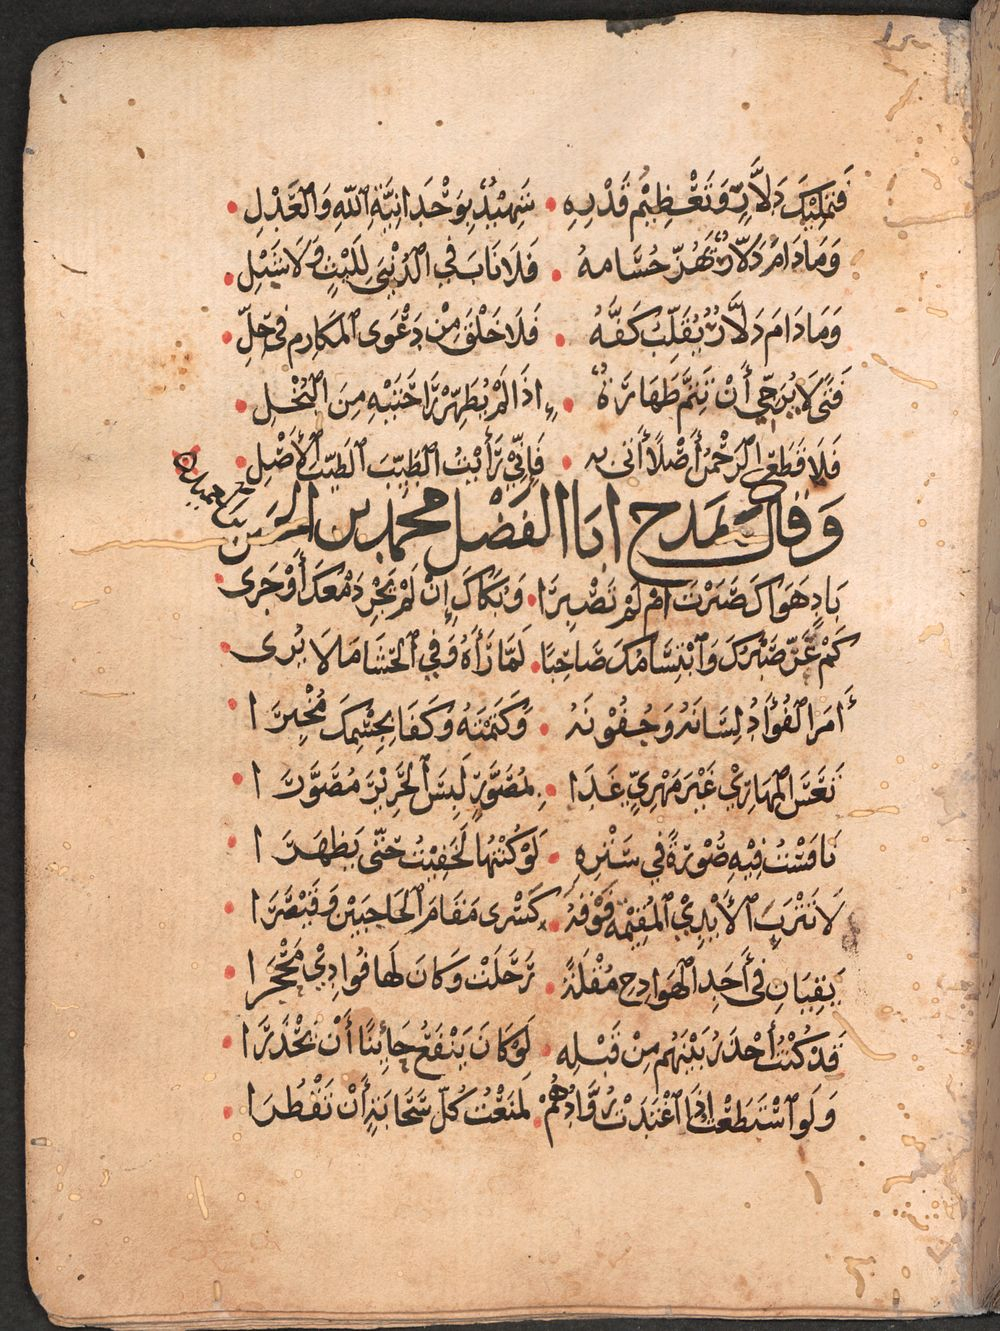 فَتَمْلِيْكُ دَلَّارٍ وَتَعْظِيْمُ قَدْرِهِ • شَهِيْدٌ بِوَحْدَانِيَّةِ اللهِ وَالْعَدْلِ •
وَمَا دَامَ دَلَّارٌ يَهُزُّ حُسَامهُ • فَلَا نَابَ فِي الدُّنْيَى لِلَيْثٍ وَلَا شَبْلِ •
وَمَا دَامَ دَلَّارٌ يُقَلِّبُ كَفَّهُ • فَلَا خَلْقَ مِنْ دَعْوَى الْمَكَارِمِ فِي حِلِّ •
فَتًى لَا يُرَجِّي أَنْ تَتِمَّ طَهَارَةٌ • إِذَا لَمْ يُطَهِّرْ رَاحَتَيْهِ مِنَ الْبُخْلِ •
فَلَا قَطَعَ الرَّحْمٰنُ أَصْلًا أَتَى بِهِ • فَإِنِّي رَأَيْتُ الطَّيِّبَ الطَّيِّبَ الْأَصْلِ •
وَقَالَ يَمدَح ابَا الفَضْل محمد بن الحسَين
بن العميد
بَادٍ هَوَاكَ صَبَرْتَ أَمْ لَمْ تَصْبِرَا • وَبُكَاكَ إِنْ لَمْ يَجْرِ دَمْعُكَ أَوْ جَرَى
كَمْ غَرَّ صَبْرُكَ وَابْتِسَامُكَ صَاحِبًا • لَمَّا رَأَهُ وَفِي الْحَشَا مَا لَا يُرى •
أَمَرَ الْفُؤَادُ لِسَانَهُ وَجُفُوْنَهُ • وَكَتَمْنَهُ وَكَفَا بِجِسْمِكَ مُخْبِرَا •
تَعَسَ الْمَهَارِيْ غَيْرَ مَهْرِيٍّ غَدَا • بِمُصَوَّرٍ لَبِسَ الْحَرِيْرَ مُصَوَّرَا •
نَافَسْتُ فِيْهِ صُوْرَةً فِي سِتْرِهِ • لَوْ كُنْتُهَا لَخَفِيْتُ حَتّى يَظْهَرَا •
لَا تَتْرَبِ الْأَيْدِيْ الْمُقِيْمَةُ فَوْقَهُ • كِسْرى مَقَامَ الْحَاجِبَيْنِ وَقَيْصَرَا •
يَقِيَانِ فِي أَحَدِ الْهَوَادِجِ مُقْلَةً • رَحَلَتْ وَكَانَ لَهَا فُوَادِيْ مَحْجَرَا •
قَدْ كُنْتُ أَحْذَرُ بَيْنَهُمْ مِنْ قَبْلِهِ • لَوْ كَانَ يَنْفَعُ حَائِنًا أَنْ يَحْذَرَا •
وَلَوِ اسْتَطَعْتُ إِذَا اغْتَدَتْ رُوَّادُهُمْ • لَمَنَعْتُ كُلَّ سَحَابَةٍ أَنْ تَقْطُرَا •